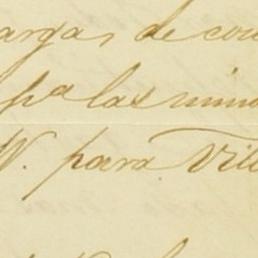 argas, de cou
pª las mina
N. para Vill